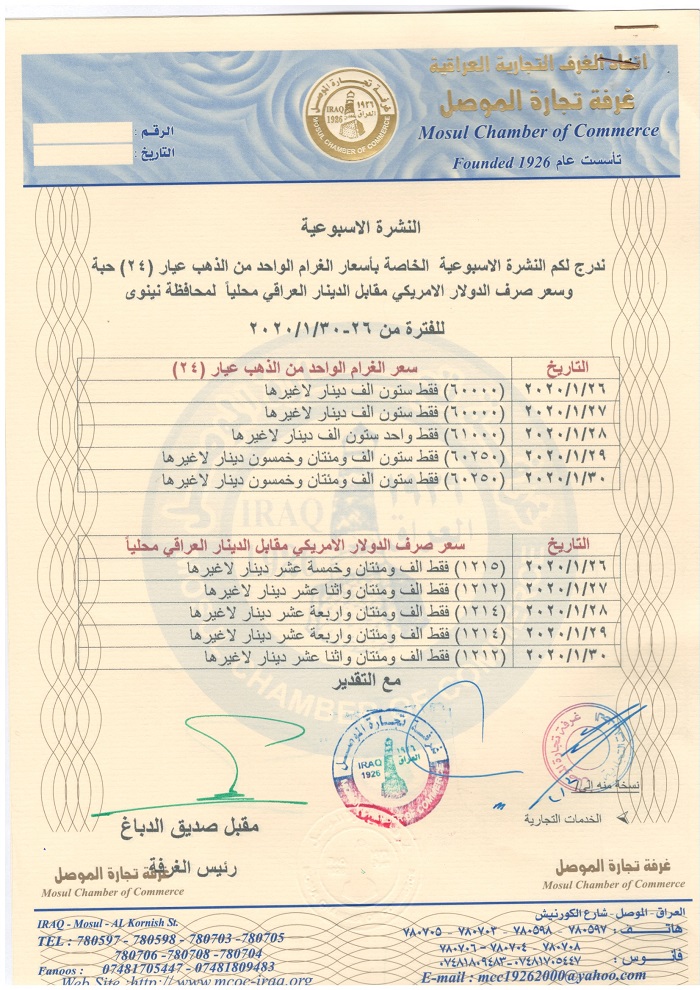 اتحاد الغرف التجارية العراقية
غرفة تجارة الموصل
Mosul Chamber of Commerce
Founded 1926 تأسست عام
غرفة تجارة الموصل
IRAQ ١٩٢٦
1926 العراق
MOSUL CHAMBER OF COMMERCE
الرقم :
التاريخ :
النشرة الاسبوعية
ندرج لكم النشرة الاسبوعية الخاصة بأسعار الغرام الواحد من الذهب عيار (٢٤) حبة
وسعر صرف الدولار الامريكي مقابل الدينار العراقي محلياً لمحافظة نينوى
للفترة من ٢٦-٢٠٢٠/١/٣٠
التاريخ سعر الغرام الواحد من الذهب عيار (٢٤)
٢٠٢٠/١/٢٦ (٦٠٠٠٠) فقط ستون الف دينار لاغيرها
٢٠٢٠/١/٢٧ (٦٠٠٠٠) فقط ستون الف دينار لاغيرها
٢٠٢٠/١/٢٨ (٦١٠٠٠) فقط واحد ستون الف دينار لاغيرها
٢٠٢٠/١/٢٩ (٦٠٢٥٠) فقط ستون الف ومئتان وخمسون دينار لاغيرها
٢٠٢٠/١/٣٠ (٦٠٢٥٠) فقط ستون الف ومئتان وخمسون دينار لاغيرها
التاريخ سعر صرف الدولار الامريكي مقابل الدينار العراقي محلياً
٢٠٢٠/١/٢٦ (١٢١٥) فقط الف ومئتان وخمسة عشر دينار لاغيرها
٢٠٢٠/١/٢٧ (١٢١٢) فقط الف ومئتان واثنا عشر دينار لاغيرها
٢٠٢٠/١/٢٨ (١٢١٤) فقط الف ومئتان واربعة عشر دينار لاغيرها
٢٠٢٠/١/٢٩ (١٢١٤) فقط الف ومئتان واربعة عشر دينار لاغيرها
٢٠٢٠/١/٣٠ (١٢١٢) فقط الف ومئتان واثنا عشر دينار لاغيرها
مع التقدير
غرفة تجارة الموصل
IRAQ ١٩٢٦
1926 العراق
نسخة منه إلى/
الخدمات التجارية
مقبل صديق الدباغ
رئيس الغرفة
غرفة تجارة الموصل
Mosul Chamber of Commerce
غرفة تجارة الموصل
Mosul Chamber of Commerce
العراق - الموصل - شارع الكورنيش
هاتف : ٧٨٠٥٩٧ - ٧٨٠٥٩٨ - ٧٨٠٧٠٣ - ٧٨٠٧٠٥
٧٨٠٧٠٨ - ٧٨٠٧٠٤ - ٧٨٠٧٠٦
فانوس : ٠٧٤٨١٧٠٥٤٤٧ - ٠٧٤٨١٨٠٩٤٨٣
E-mail : mcc19262000@yahoo.com
IRAQ - Mosul - AL Kornish St.
TEL : 780597 - 780598 - 780703 -780705
780706 -780708 -780704
Fanoos : 07481705447 - 07481809483
Web Site :http:// www.mcoc-iraq.org